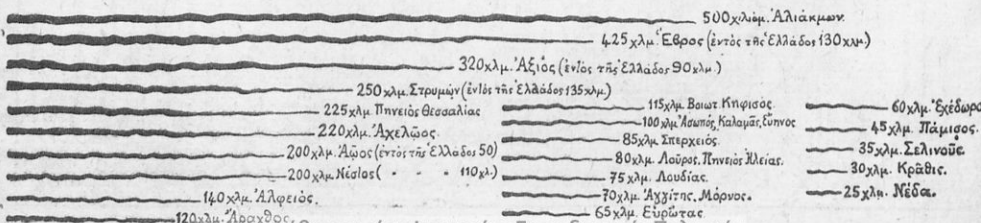 500 χιλιόμ. Ἁλιάκμων.
425 χλμ. Ἕβρος (ἐντὸς τῆς Ἑλλάδος 130 χλμ.)
320 χλμ. Ἀξιός (ἐντὸς τῆς Ἑλλάδος 90 χλμ.)
250 χλμ. Στρυμών (ἐντὸς τῆς Ἑλλάδος 135 χλμ.)
225 χλμ. Πηνειὸς Θεσσαλίας
220 χλμ. Ἀχελῷος.
200 χλμ. Ἀῷος (ἐντὸς τῆς Ἑλλάδος 50)
200 χλμ. Νέσ̣τος ( " " " 110 χλ.)
140 χλμ. Ἀλφειός.
120 χλμ. Ἄραχθος.
115 χλμ. Βοιωτ. Κηφισός.
100 χλμ. Ἀσωπός, Καλαμᾶς, Εὔηνος
85 χλμ. Σπερχειός.
80 χλμ. Λοῦρος, Πηνειὸς Ἠλείας.
75 χλμ. Λουδίας.
70 χλμ. Ἀγγίτης, Μόρνος.
65 χλμ. Εὐρώτας
60 χλμ. Ἐχέδωρο
45 χλμ. Πάμισος.
35 χλμ. Σελινοῦς.
30 χλμ. Κρᾶθις.
25 χλμ. Νέδα.